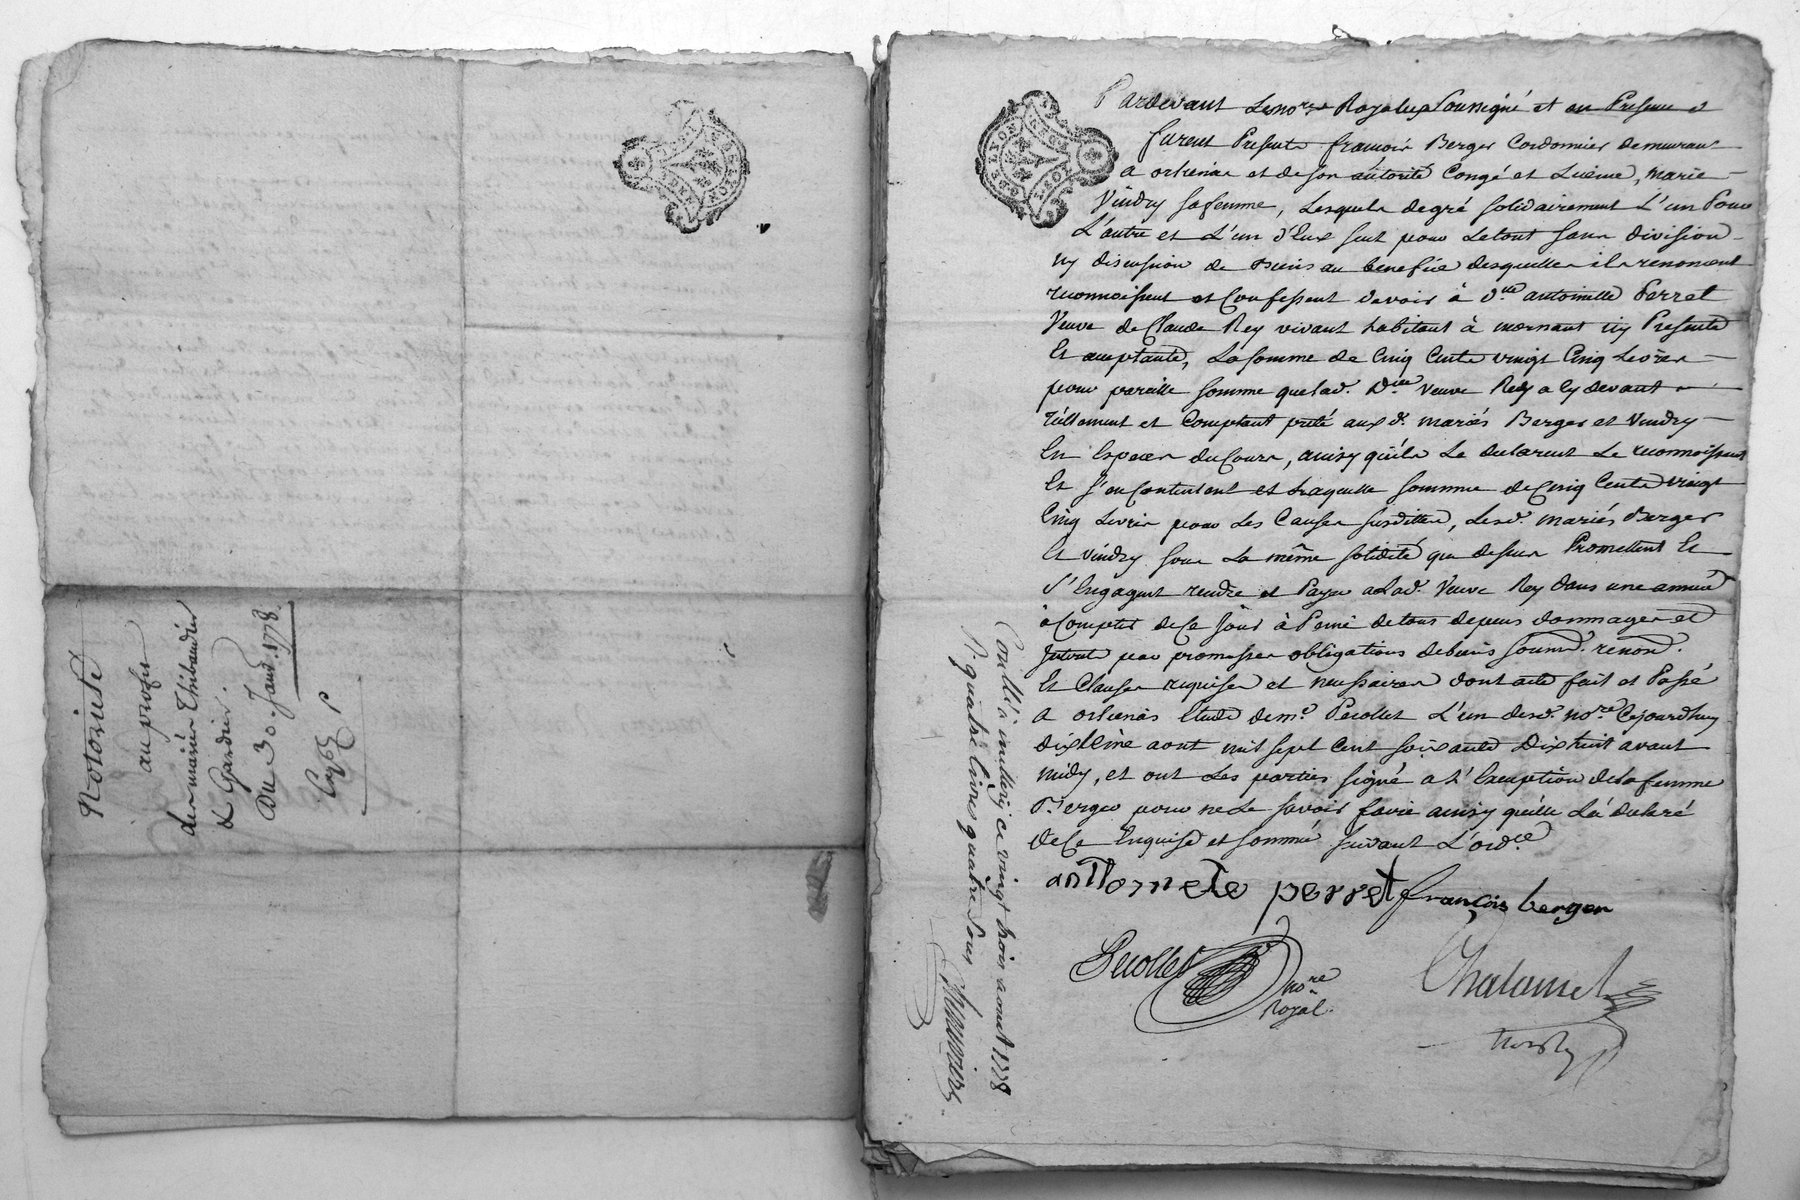 Notorieté
au profit
des mariés Thibaudier
& Gardier.
Du 30 Janv. 1778
Pardevant Les nores Royaux Soussigné et en Presence d
furent Presents francois Berger Cordonnier demeurant
a orlienas et de son autorité Congé et Licence, marie
Vindry sa femme, Lesquels de gré solidairement L'un Pour
L'autre et L'un d'Eux seul pour Le tout sans division
ny discussion de biens au benefice desquelles ils renoncent
reconnoissent et Confessent devoir à dlle antoinette Perret
Veuve de Claude Rey vivant habitant à mornant icy Presente
Et acceptante, La somme de Cinq Cents vingt Cinq Livres
pour pareille somme que lad. Dlle veuve Rey a Cy devant
réellement et Comptant preté aux d. mariés Berger et Vindry
En Especes du Cours, ainsy qu'ils Le declarent Le reconnoissent
Et s'en Contentent et Laquelle somme de Cinq Cents vingt
Cinq Livres pour Les Causes susdittes, Lesd. mariés Berger
Et vindry sous La même solidité que dessus Promettent Et
s'Engagent rendre et Payer a Lad. Veuve Rey dans une année
à Compter de Ce jour à Peine de tous depens dommages et
Interets par promesses obligations de biens soumd. renond.
Et Clauses requises et necessaires dont acte fait et Passé
A orlienas Etude de me. Pecollet L'un desd. nores Cejourdhuy
dixieme aout mil sept cent soixante Dix huit avant
midy, et ont Les parties signé a L'Exception de La femme
Berger pour ne Le savoir faire ainsy qu'elle L'a declaré
de Ce Enquise et sommé suivant L'ordce
anttoinete perret françois berger
Pecollet
nore
Royal.
Chalamel
Conllé à millery ce vingt trois aoust 1778
R. quatre livres quatre sous